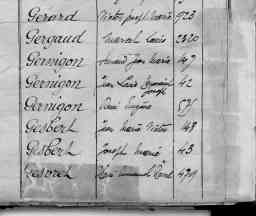 Gérard Victor Joseph Marie 923
Gergaud Marcel Louis 2420
Gernigon Armand Jean Marie 47
Gernigon Jean Louis Joseph 42
Gernigon René Eugène
Gesbert Jean Marie Victor 148
Gesbert Joseph Marie 43
Gesvret Emmanuel René